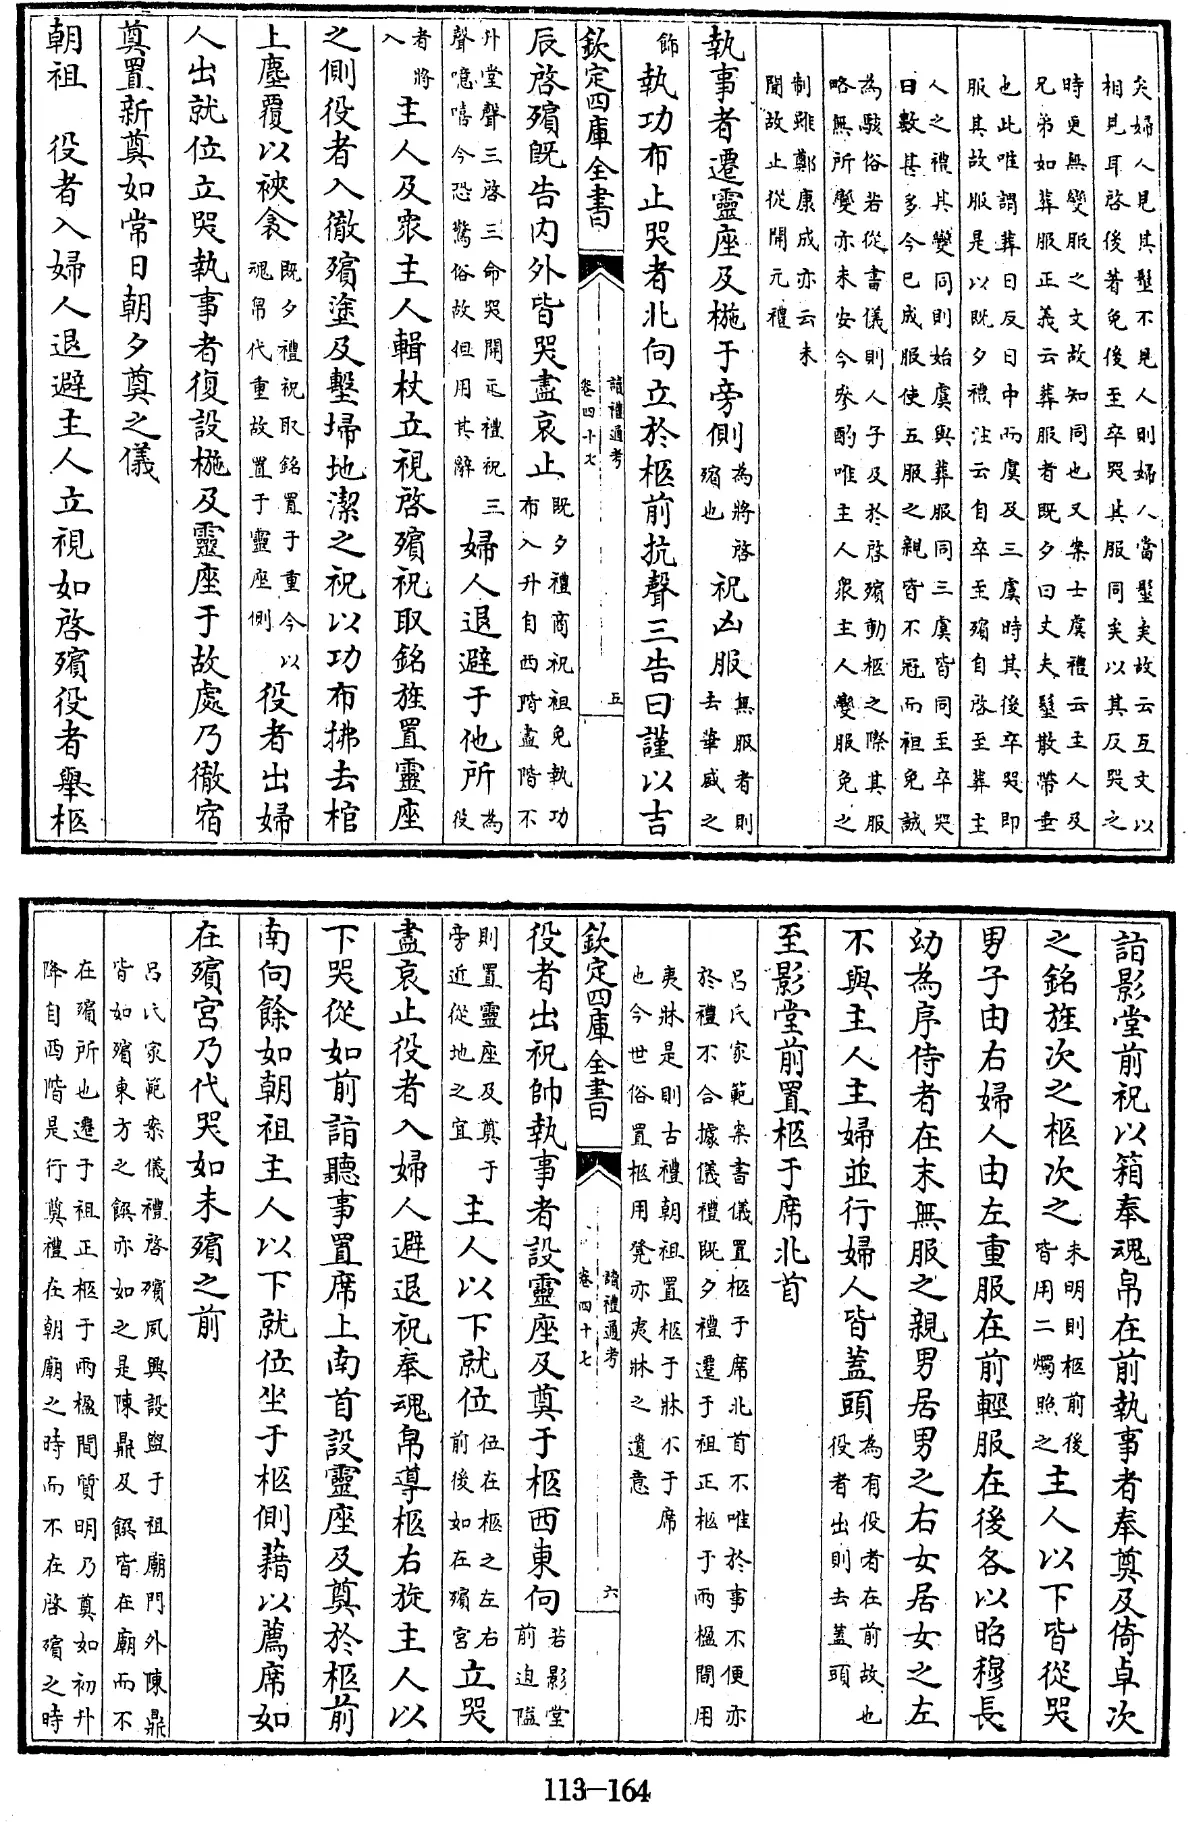 矣婦人見其髽不見人則婦人當髽矣故云互文以
相見耳啓後著免後至卒哭其服同矣以其反哭之
時更無變服之文故知同也又案士虞禮云主人及
兄弟如葬服正義云葬服者既夕曰丈夫髽散帶垂
也此唯謂葬日反日中而虞及三虞時其後卒哭即
服其故服是以既夕禮注云自卒至殯自啓至葬主
人之禮其變同則始虞與葬服同三虞皆同至卒哭
日數甚多今已成服使五服之親皆不冠而袒免誠
為駭俗若從書儀則人子及於啓殯動柩之際其服
略無所變亦未安今參酌唯主人衆主人變服免之
制雖鄭康成亦云未
聞故止從開元禮
執事者遷靈座及椸于旁側為將啓殯也祝凶服無服者則去華盛之
飾執功布止哭者北向立於柩前抗聲三告曰謹以吉
欽定四庫全書
讀禮通考
卷四十七
五
辰啓殯既告内外皆哭盡哀止既夕禮商祝袒免執功布入升自西階盡階不
升堂聲三啓三命哭開元禮祝三聲噫嘻今恐驚俗故但用其辭婦人退避于他所為役
者將入主人及衆主人輯杖立視啓殯祝取銘旌置靈座
之側役者入徹殯塗及墼埽地潔之祝以功布拂去棺
上塵覆以裌衾既夕禮祝取銘置于重今以魂帛代重故置于靈座側役者出婦
人出就位立哭執事者復設椸及靈座于故處乃徹宿
奠置新奠如常日朝夕奠之儀
朝祖　役者入婦人退避主人立視如啓殯役者舉柩
詣影堂前祝以箱奉魂帛在前執事者奉奠及倚卓次
之銘旌次之柩次之未明則柩前後皆用二燭照之主人以下皆從哭
男子由右婦人由左重服在前輕服在後各以昭穆長
幼為序侍者在末無服之親男居男之右女居女之左
不與主人主婦並行婦人皆蓋頭為有役者在前故也役者出則去蓋頭
至影堂前置柩于席北首
呂氏家範案書儀置柩于席北首不唯於事不便亦
於禮不合據儀禮既夕禮遷于祖正柩于兩楹間用
夷牀是則古禮朝祖置柩于牀不于席
也今世俗置柩用凳亦夷牀之遺意
欽定四庫全書
讀禮通考
卷四十七
六
役者出祝帥執事者設靈座及奠于柩西東向若影堂前迫隘
則置靈座及奠于旁近從地之宜主人以下就位位在柩之左右前後如在殯宮立哭
盡哀止役者入婦人避退祝奉魂帛導柩右旋主人以
下哭從如前詣聽事置席上南首設靈座及奠於柩前
南向餘如朝祖主人以下就位坐于柩側藉以薦席如
在殯宮乃代哭如未殯之前
呂氏家範案儀禮啓殯夙興設盥于祖廟門外陳鼎
皆如殯東方之饌亦如之是陳鼎及饌皆在廟而不
在殯所也遷于祖正柩于兩楹間質明乃奠如初升
降自西階是行奠禮在朝廟之時而不在啓殯之時
113-164